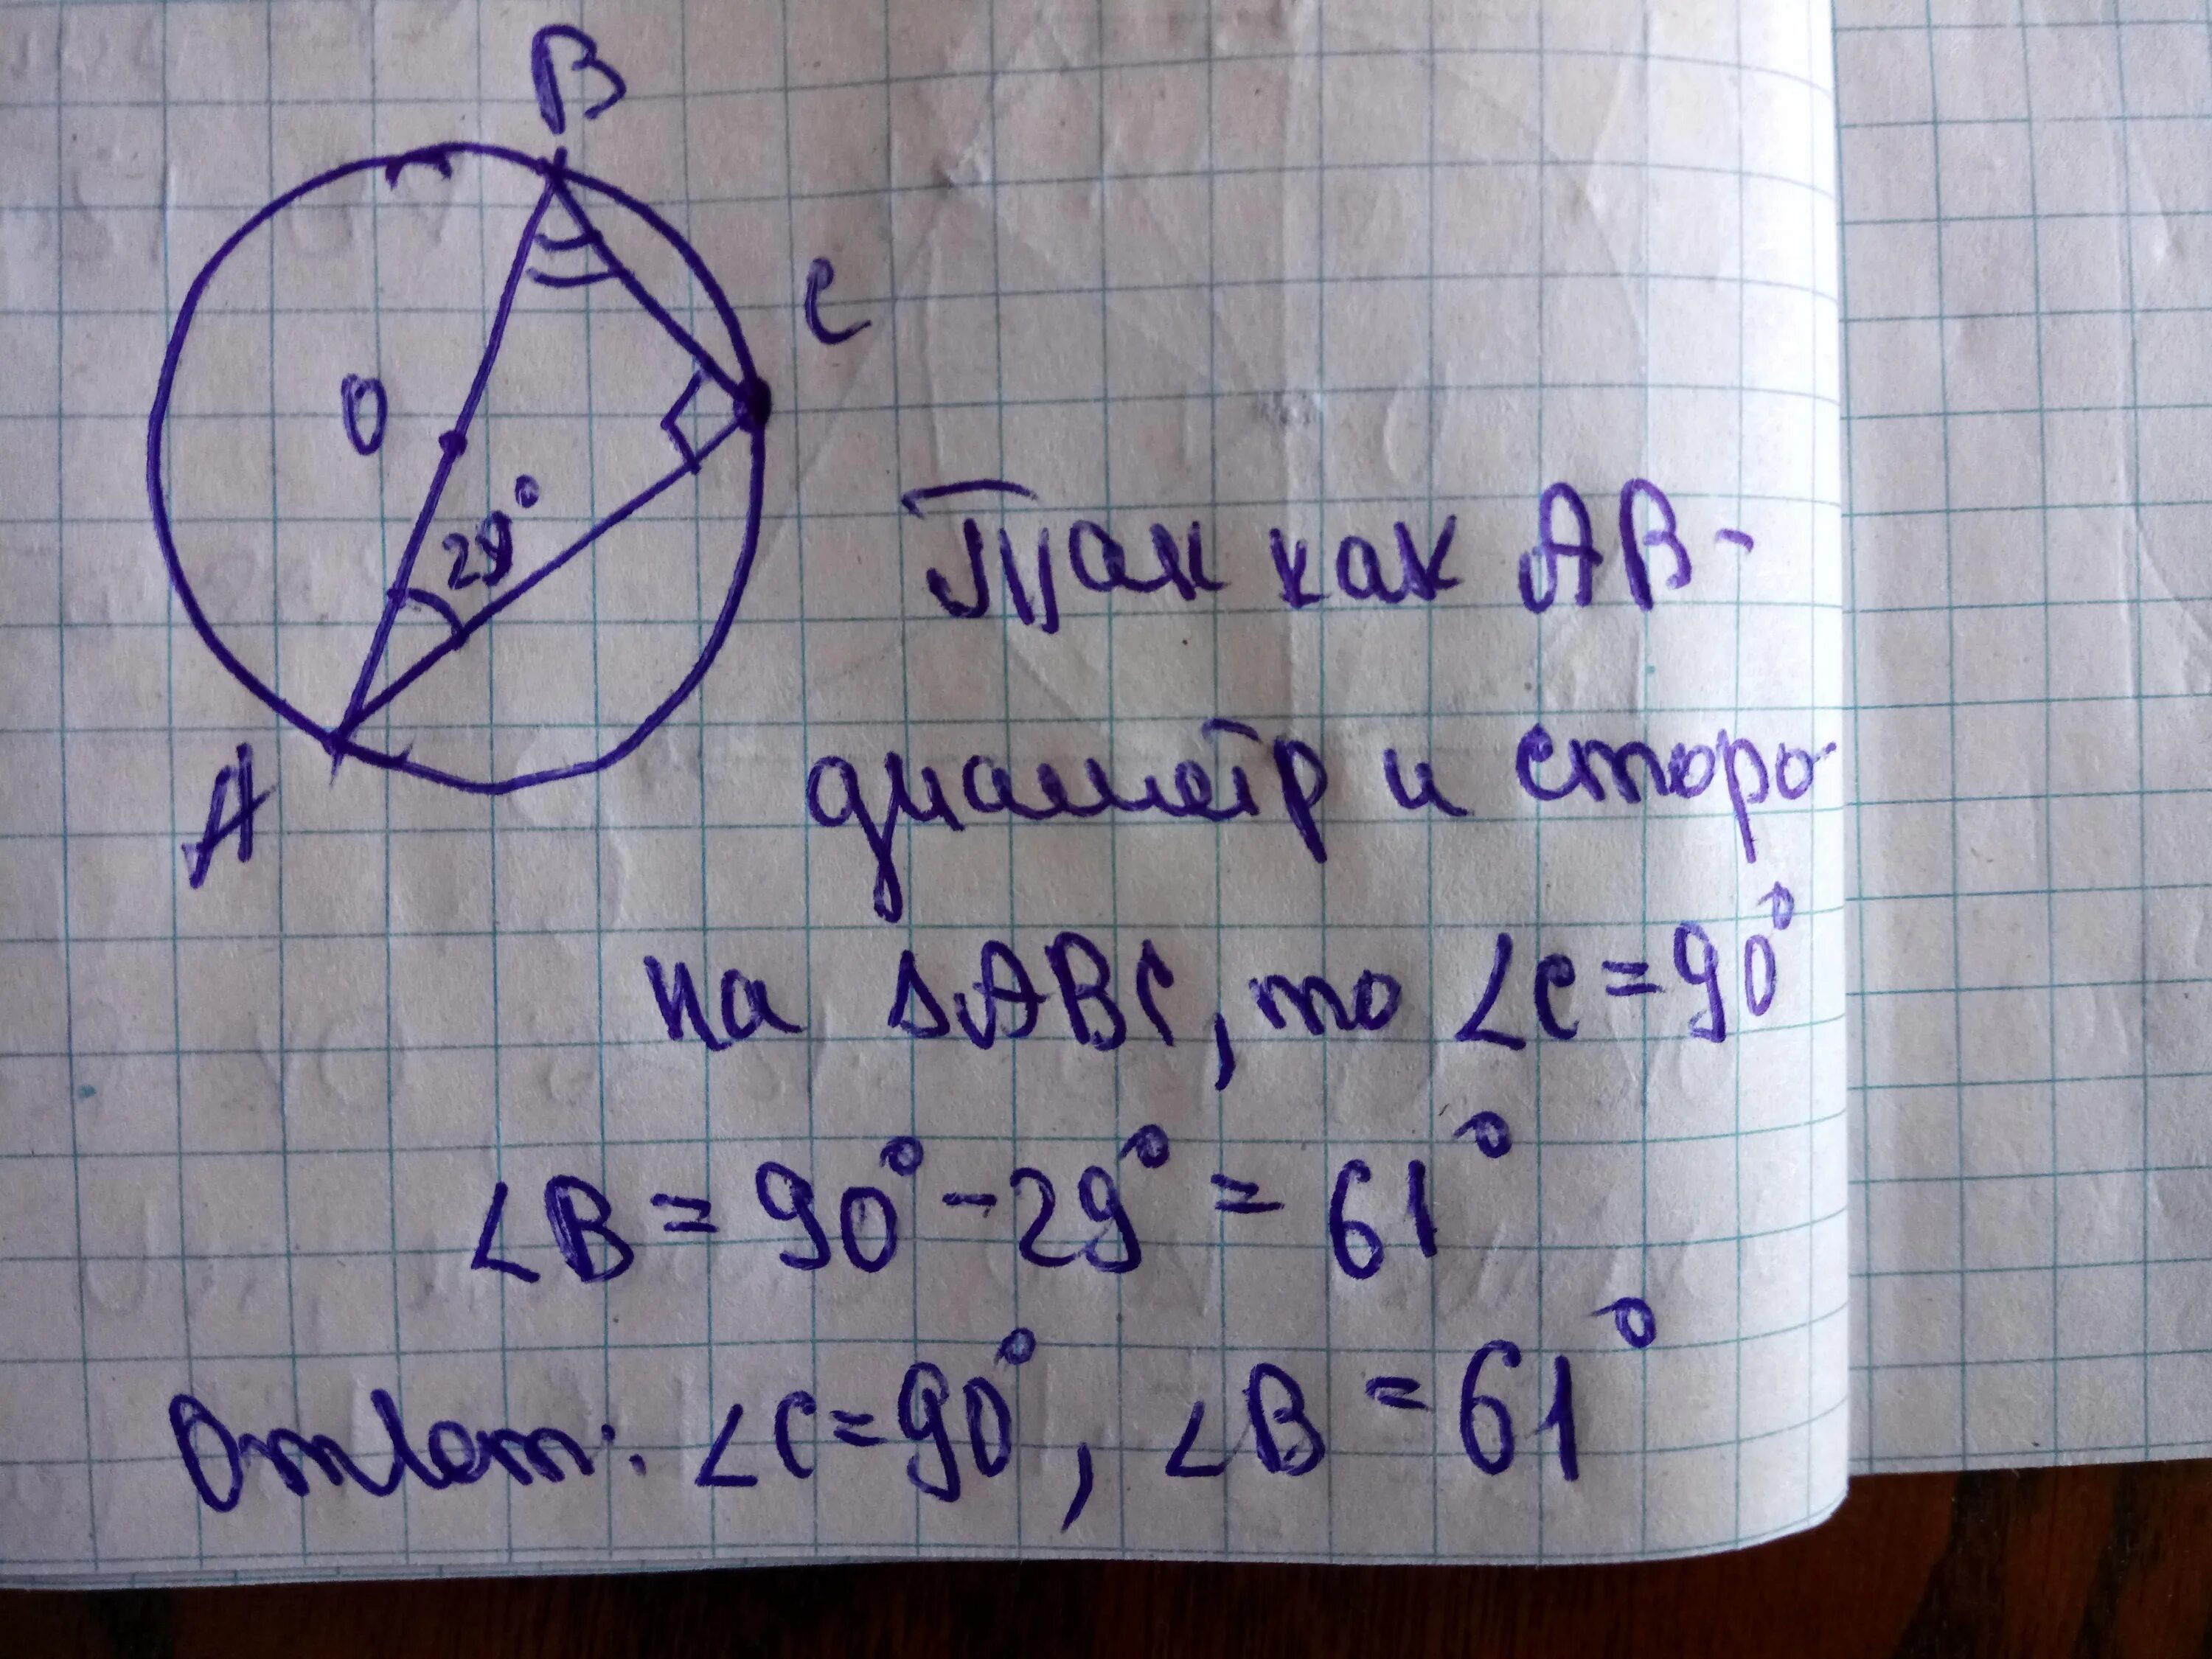 B
C
O
29°
A
Так как AB-
диаметр и сторо-
на ΔABC, то ∠C=90°
∠B = 90° - 29° = 61°
Ответ: ∠C=90°, ∠B = 61°